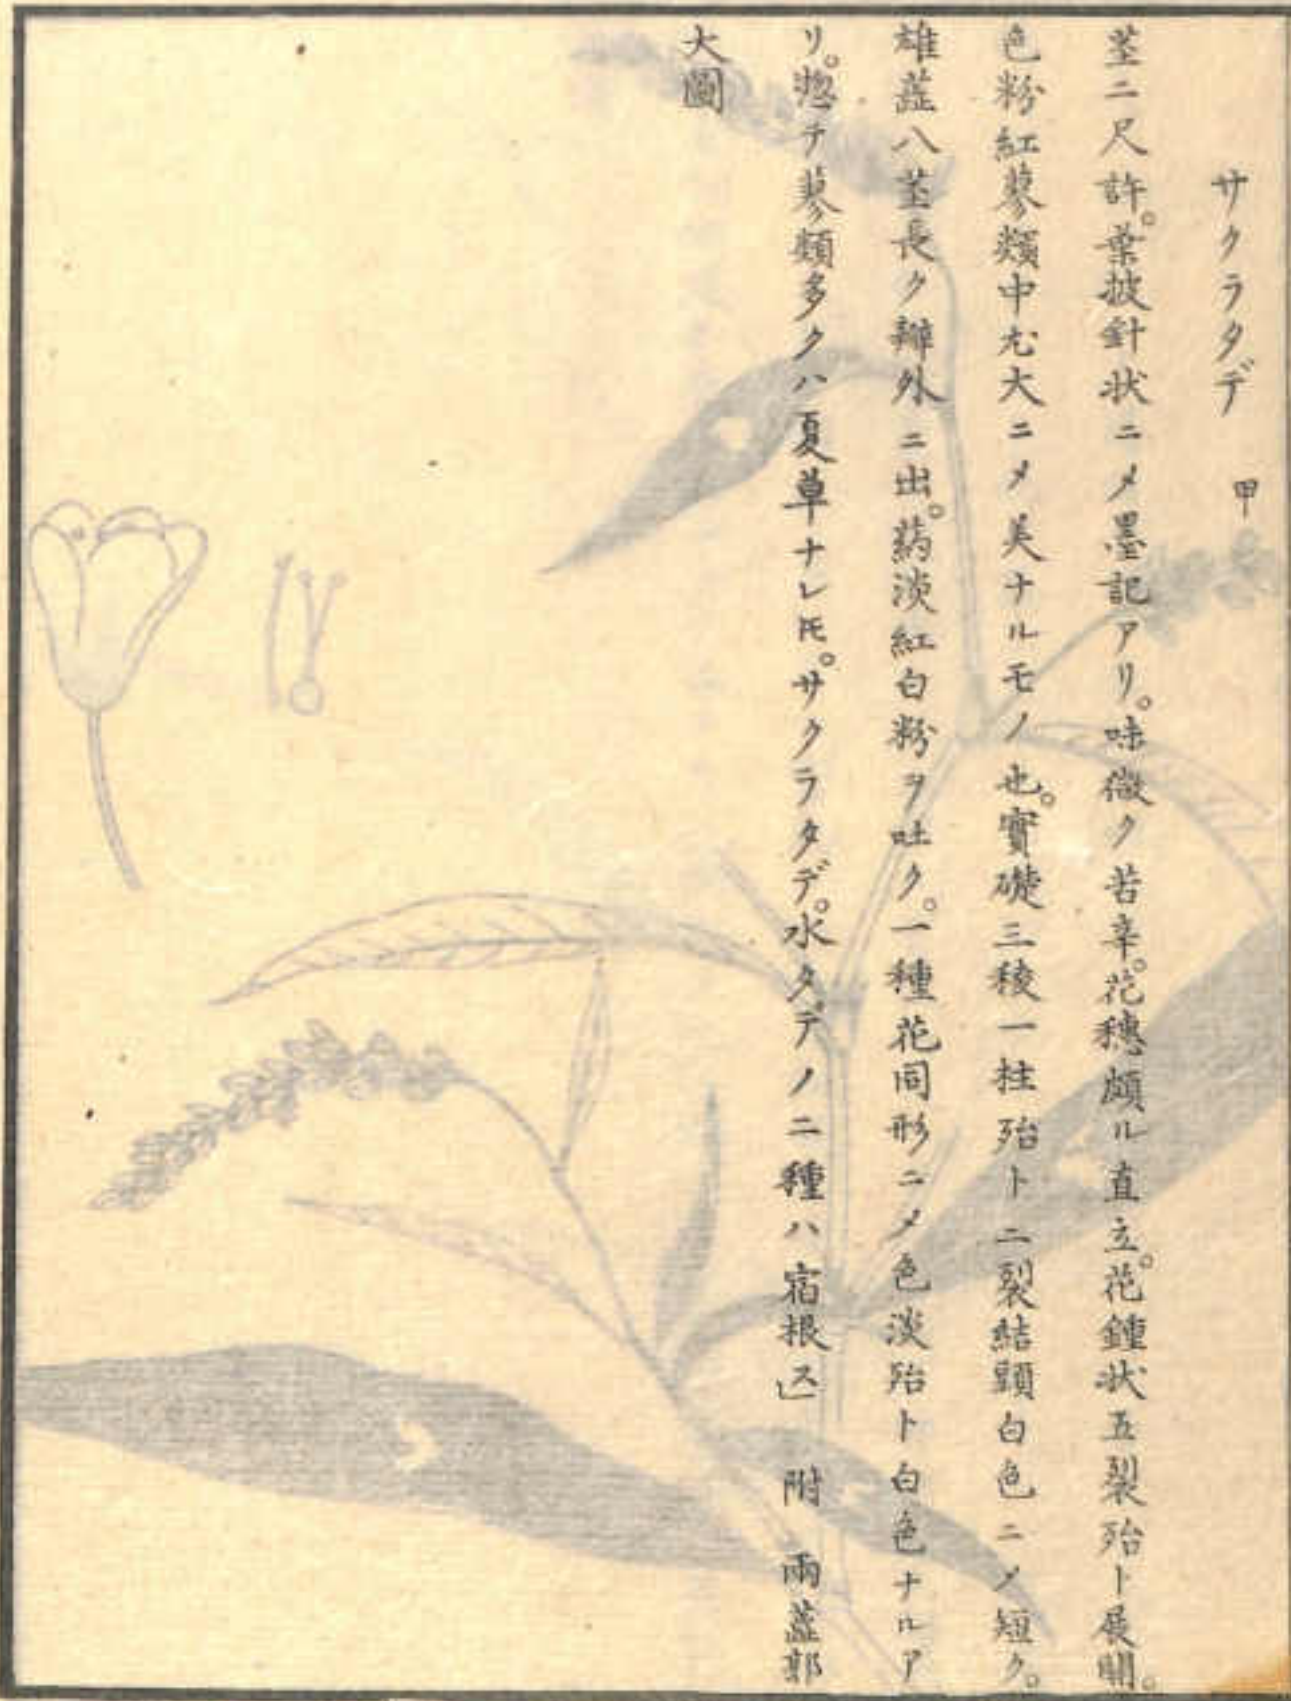 サクラタデ 甲
莖二尺許。葉披針状ニメ墨記アリ。味微ク苦辛。花穗頗ル直立。花鍾状五裂殆ト展開。
色粉紅蓼類中尤大ニメ美ナルモノ也。實礎三稜一柱殆ト二裂結顆白色ニメ短ク。
雄蕋八莖長ク瓣外ニ出。葯淡紅白粉ヲ吐ク。一種花同形ニメ色淡殆ト白色ナルア
リ。惣テ蓼類多クハ夏草ナレ𪜈。サクラタデ。水タデノ二種ハ宿根ス」 附 兩蕋郭
大圖